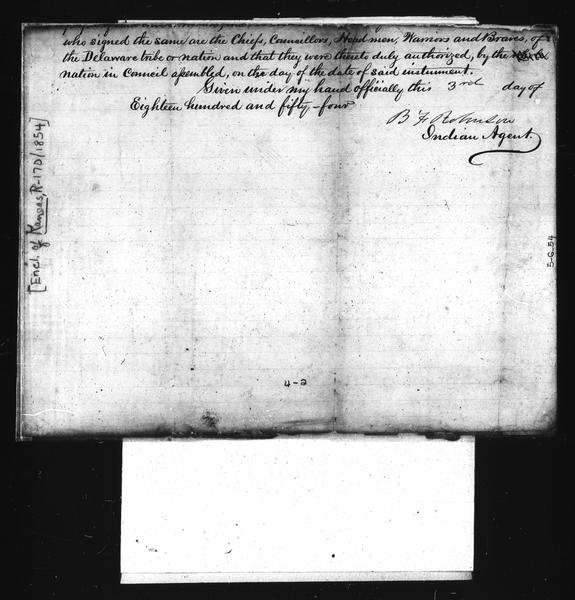 who signed the same are the Chiefs, Councillors, Head men, Warriors and Braves, of
the Delaware tribe or nation and that they were thereto duly authorized, by the
nation in Council assembled, on the day of the date of said instrument.
Given under my hand officially this 3rd day of
Eighteen hundred and fifty-four
B F Robinson
Indian Agent
[Encl. of Kansas, R-170/1854]
5-6-54
4-2